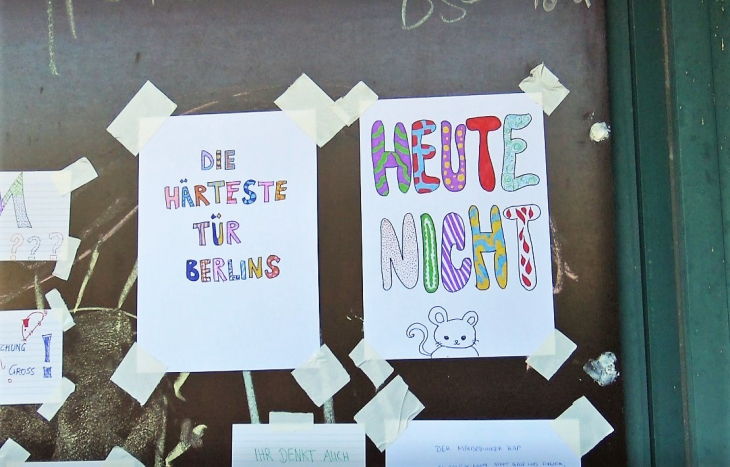 DIE
HÄRTESTE
TÜR
BERLINS
HEUTE
NICHT
???
CHUNG !
GROSS
IHR DENKT AUCH
DER